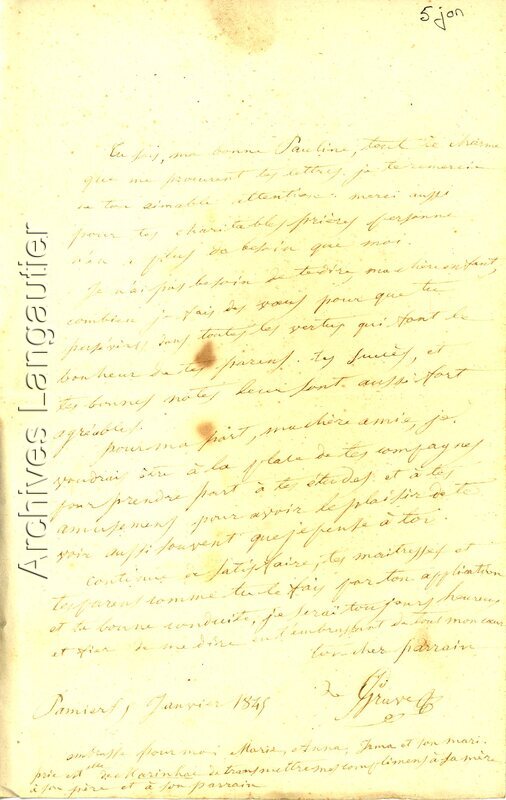 5 jon
Tu sais, ma bonne Pauline, tout le charme
que me procurent tes lettres, je te remercie
de ton aimable attention. merci aussi
pour tes charitables prières personne
n'en a plus de besoin que moi.
Je n'ai pas besoin de te dire, ma chère enfant,
combien je fais des vœux pour que tu
persévères dans toutes les vertus qui font le
bonheur de tes parens. tes succès, et
tes bonnes notes leur sont aussi fort
agréables.
pour ma part, ma chère amie, je
voudrais être à la place de tes compagnes
pour prendre part à tes études et à tes
amusemens pour avoir le plaisir de te
voir aussi souvent que je pense à toi.
Continue de satisfaire, tes maitresses et
tes parens comme tu le fais par ton application
et ta bonne conduite, je serai toujours heureux
et fier de me dire en t'embrassant de tout mon cœur
ton cher parrain
de
Pamiers 5 Janvier 1845
embrasse pour moi Marie, Anna, Irma et son mari
prie de Marinhac de transmettre mes complimens à sa mère
à son père et à son parrain
Archives Langautier